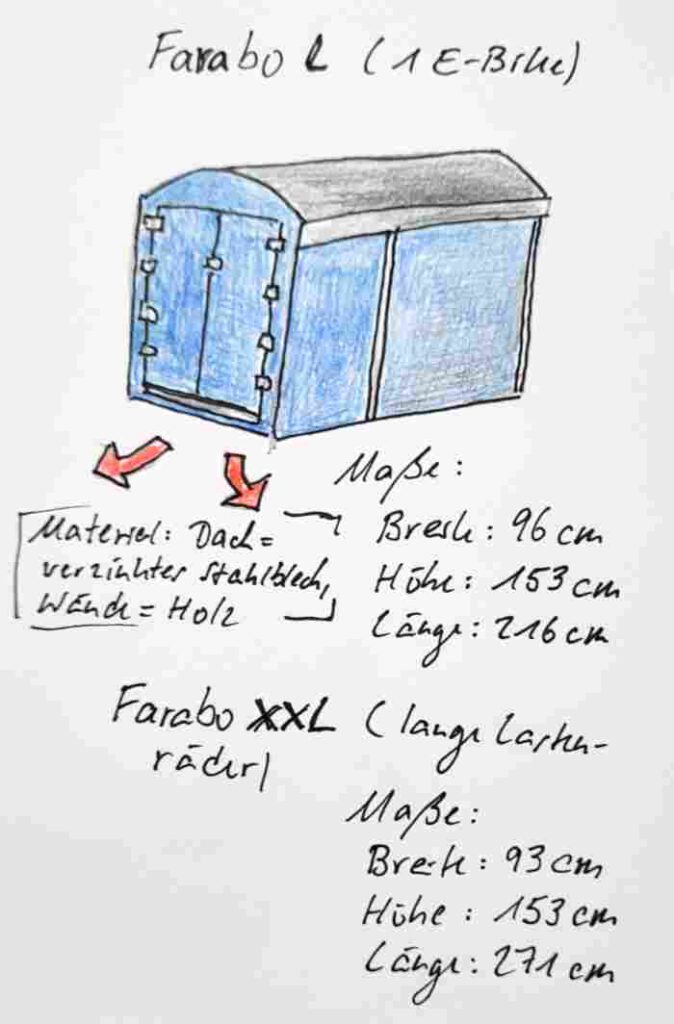 Farabo L (1 E-Bike)
Maße:
Material: Dach =
verzinktes Stahlblech,
Wände = Holz
Breite: 96 cm
Höhe: 153 cm
Länge: 216 cm
Farabo XXL (lange Lasten-
räder)
Maße:
Breite: 93 cm
Höhe: 153 cm
Länge: 271 cm